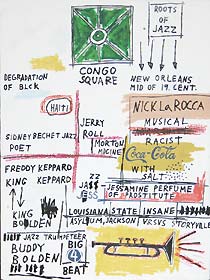 ROOTS
OF
JAZZ
CONGO
SQUARE
DEGRADATION
OF BLCK
NEW ORLEANS
MID OF 19. CENT.
HAITI
NICK LA ROCCA
MUSICAL
RACIST
JERRY
ROLL
MORTON
SIDNEY BECHET JAZZ
POET
Coca-Cola
WITH
SALT
FREDDY KEPPARD
KING KEPPARD
ZZ
JASS
ESS
JESSAMINE PERFUME
OF PROSTITUTE
KING
BOLDEN
LOUISIANA STATE INSANE
ASYLUM, JACKSON
VRSUS STORYVILLE
JAZZ TRUMPETEER
BUDDY
BOLDEN
BIG
4
BEAT